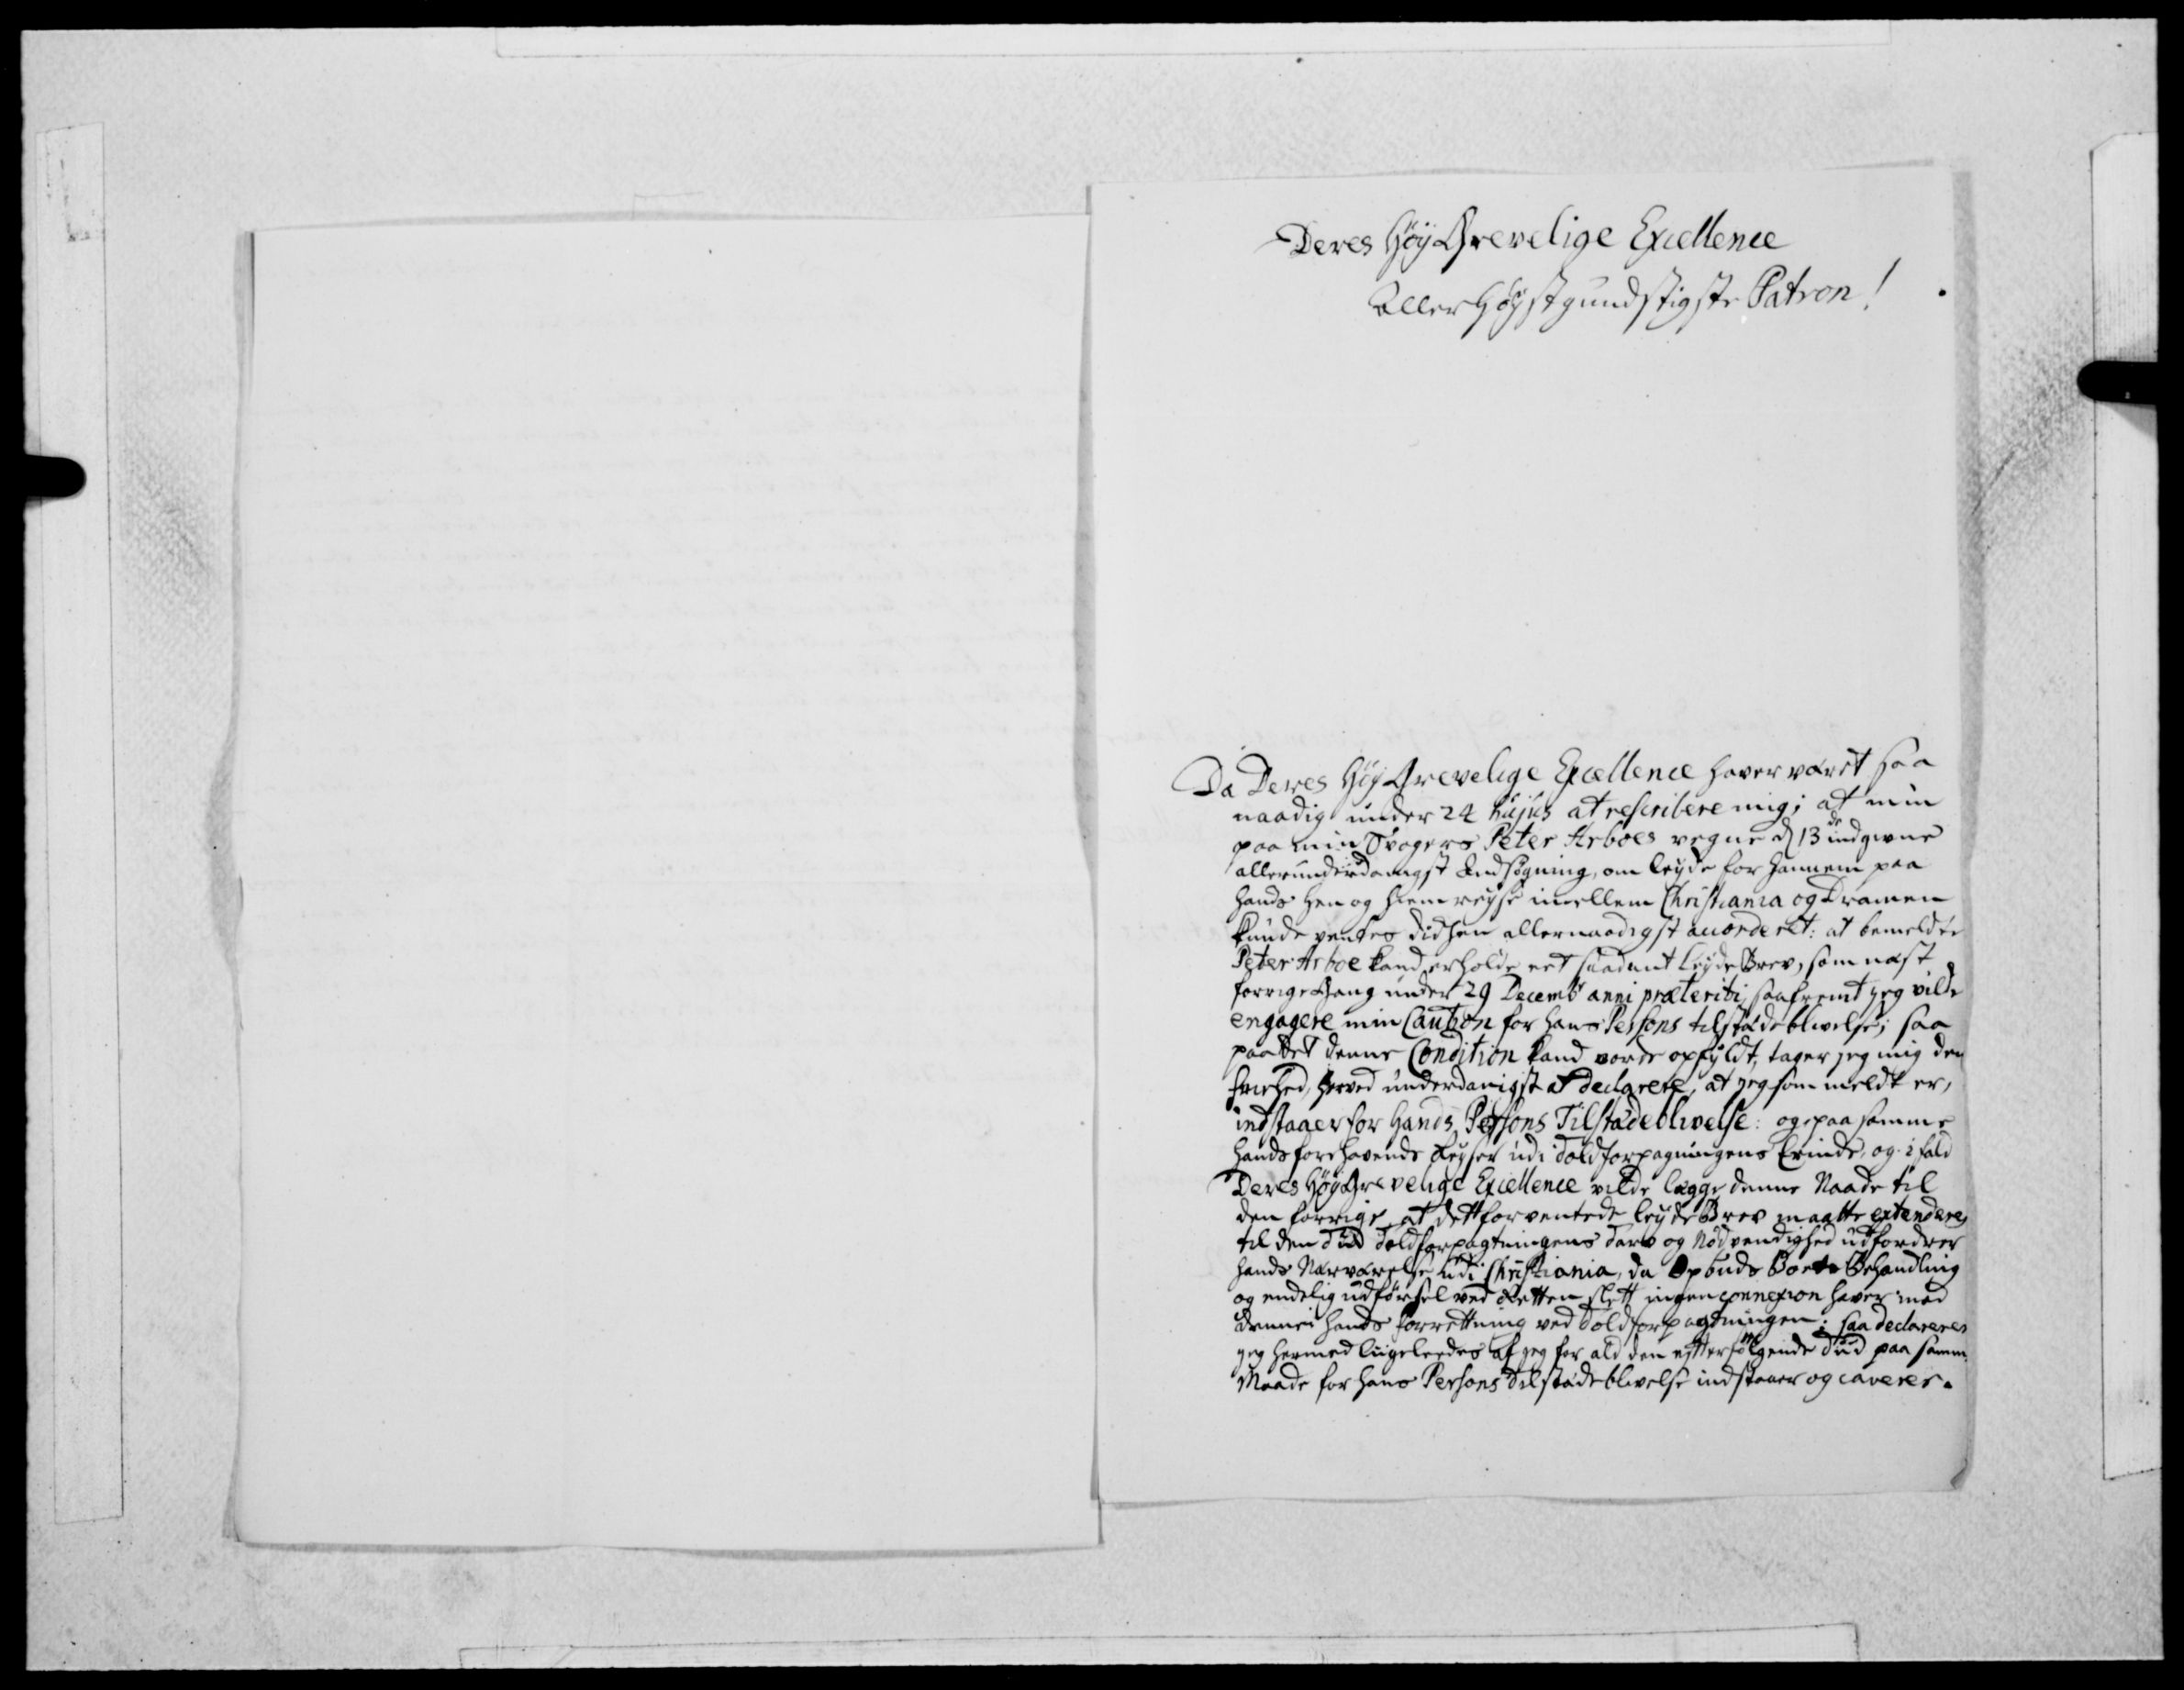 Deres HöÿGrevelige Excellence
Aller Höÿstgundstigste Patron!
Da Deres HöyGrevelige Excellence haver været saa
naadig under 24 hujus at rescribere mig; at min
paa min Svogers Peter Arboes vegne d 13de indgivne
allerunderdanigst Ansögning, om leyde for hannem paa
hands hen og hiem reyse imellem Christiania og Dramen
kunde ventes didhen allernaadigst accorderet: at bemeldte
Peter Arboe kand erholde eet saadant LeydeBrev, som næst
forrige Gang under 29 Decembr anni præteriti, saafremt jeg vilde
engagere min Caution for hans Persons tilstædeblivelse; saa
paa det denne Condition kand vorde opfyldt, tager jeg mig den
friehed, herved underdanigst at declarere, at jeg som meldt er,
indstaaer for Hands Persons Tilstædeblivelse: og paa samme
hands forehavende Reyser udi Toldforpagtningens Erinde, og i fald
Deres HöyGrevelige Excellence vilde lægge denne Naade til
den forrige, at dett forventede leydeBrev maatte extenderes
til den Tiid Toldforpagtningens Tarv og Nödvendighed udfordrer
hands Nærværelse udi Christiania, da Opbuds Boets Behandling
og endelig udförsel ved Retten slett ingen connexion haver med
denne hands forrettning ved Toldforpagtningen; saa declarerer
jeg hermed liigeleedes at jeg for ald den efterfölgende Tiid paa samme
Maade for hans Persons Tilstædeblivelse indstaaer og caverer.